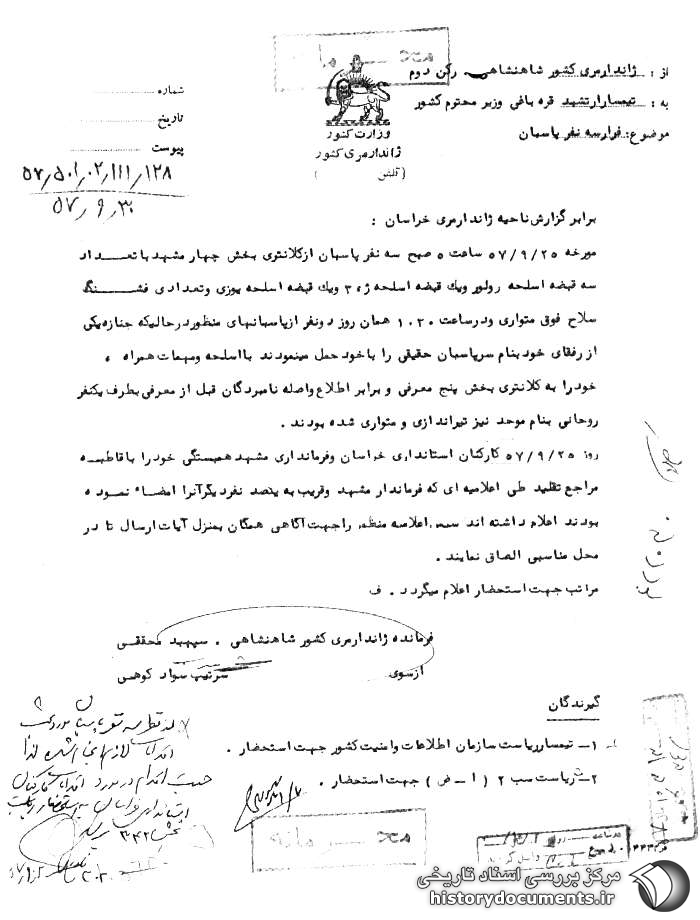 محرمانه
از : ژاندارمری کشور شاهنشاهی رکن دوم
به : تیمسار ارتشبد قره باغی وزیر محترم کشور
موضوع : فرار سه نفر پاسبان
وزارت کشور
ژاندارمری کشور
(تلفن )
شماره
تاریخ
پیوست
۵۷٫۵۰۱٫۰۲٫۱۱۱٫۱۲۸
۵۷٫۹٫۳۰
برابر گزارش ناحیه ژاندارمری خراسان :
مورخه ۵۷/۹/۲۵ ساعت ۵ صبح سه نفر پاسبان از کلانتری بخش چهار مشهد با تعداد
سه قبضه اسلحه رولور ویک قبضه اسلحه ژ۳ ویک قبضه اسلحه یوزی وتعدادی فشنگ
سلاح فوق متواری ودرساعت ۱۰۳۰ همان روز دونفر از پاسبانهای منظور درحالیکه جنازه یکی
از رفقای خود بنام سرپاسبان حقیقی را با خود حمل مینمودند با اسلحه ومهمات همراه ه
خود را به کلانتری بخش پنج معرفی و برابر اطلاع واصله نامبردگان قبل از معرفی بطرف یکنفر
روحانی بنام موحد نیز تیراندازی و متواری شده بودند .
روز ۵۷/۹/۲۵ کارکنان استانداری خراسان وفرمانداری مشهد همبستگی خود را با قاطبه
مراجع تقلید طی اعلامیه ای که فرماندار مشهد وقریب به پنصد نفر دیگر آنرا امضاء نموده
بودند اعلام داشته اند سپس اعلامیه منظور را جهت آگاهی همگان بمنزل آیات ارسال تا در
محل مناسبی الصاق نمایند .
مراتب جهت استحضار اعلام میگردد . ف
فرمانده ژاندارمری کشور شاهنشاهی . سپهبد محققی
ازسوی سرتیپ سواد کوهی
گیرندگان
۱ـ تیمسار ریاست سازمان اطلاعات وامنیت کشور جهت استحضار .
۲ـ ریاست سب ۲ ( ا ـ ض ) جهت استحضار .
محرمانه
مرکز بررسی اسناد تاریخی
historydocuments.ir